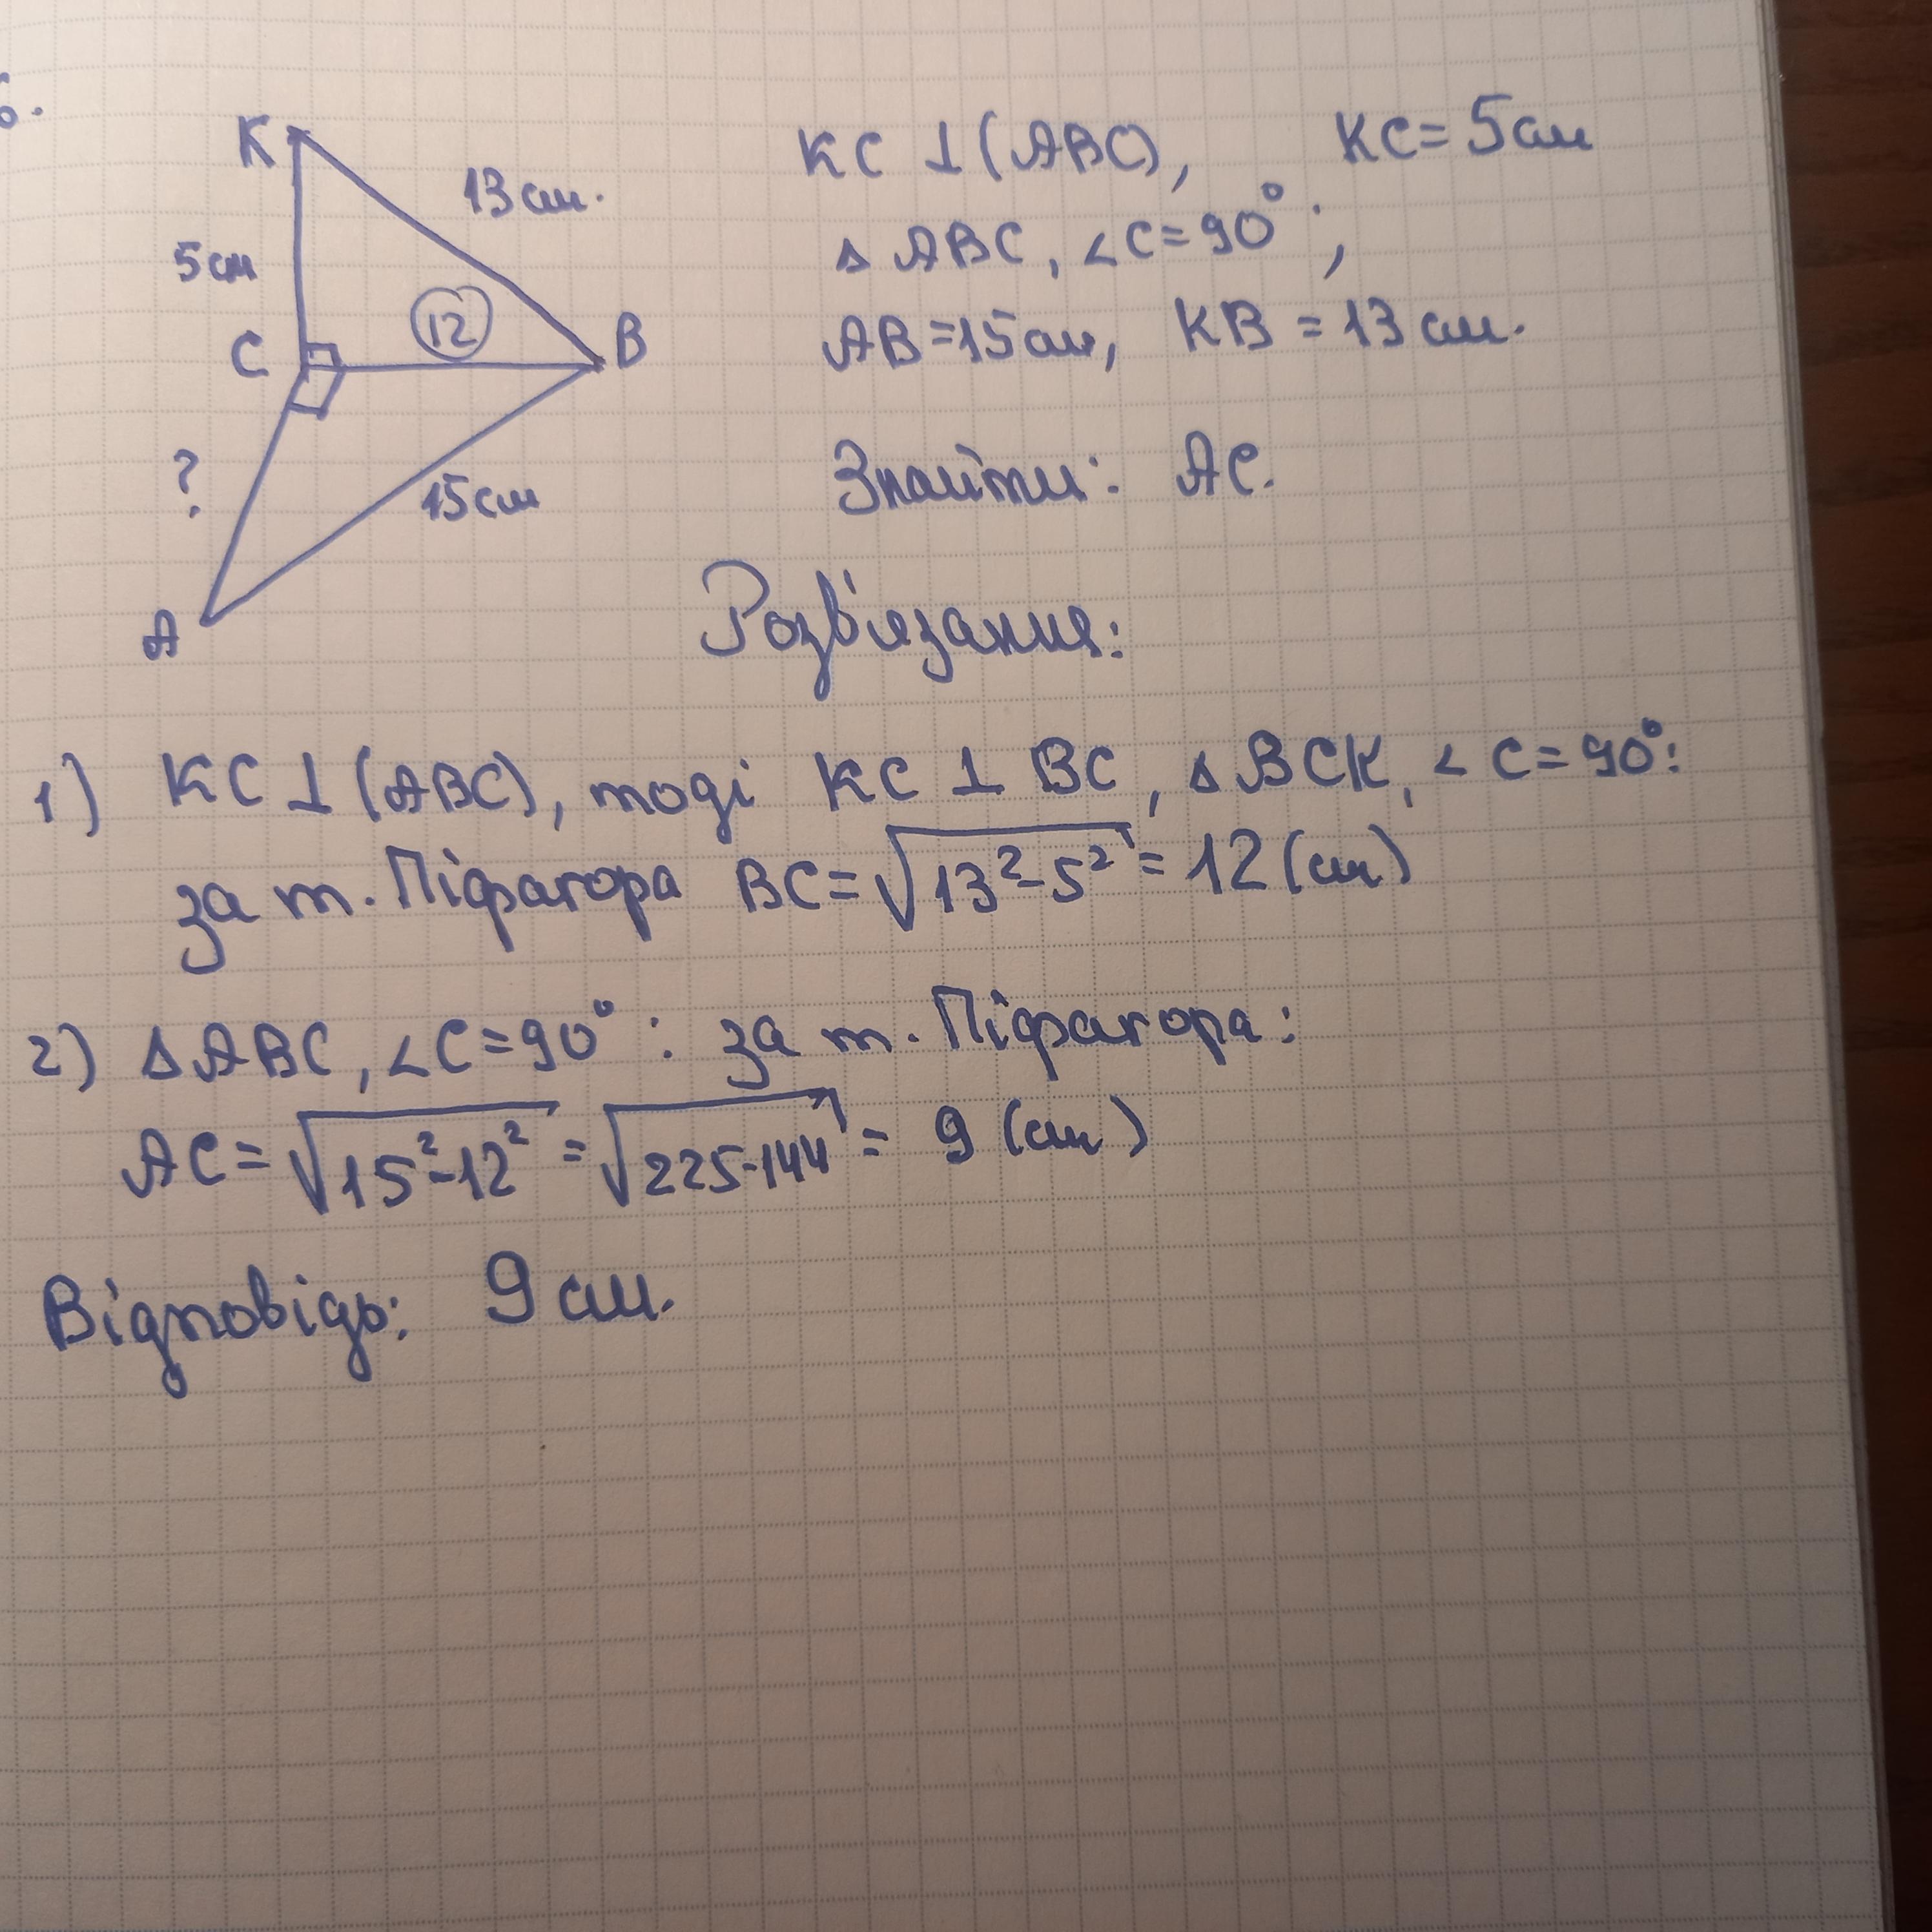 K
13 см.
5 см
C
12
B
?
15 см
A
KC ⊥ (ABC), KC = 5 см
△ ABC, ∠C = 90°;
AB = 15 см, KB = 13 см.
Знайти: AC.
Розв'язання:
1) KC ⊥ (ABC), тоді KC ⊥ BC, △ BCK, ∠C = 90°:
за т. Піфагора BC = √13² - 5² = 12 (см)
2) △ ABC, ∠C = 90°: за т. Піфагора:
AC = √15² - 12² = √225 - 144 = 9 (см)
Відповідь: 9 см.